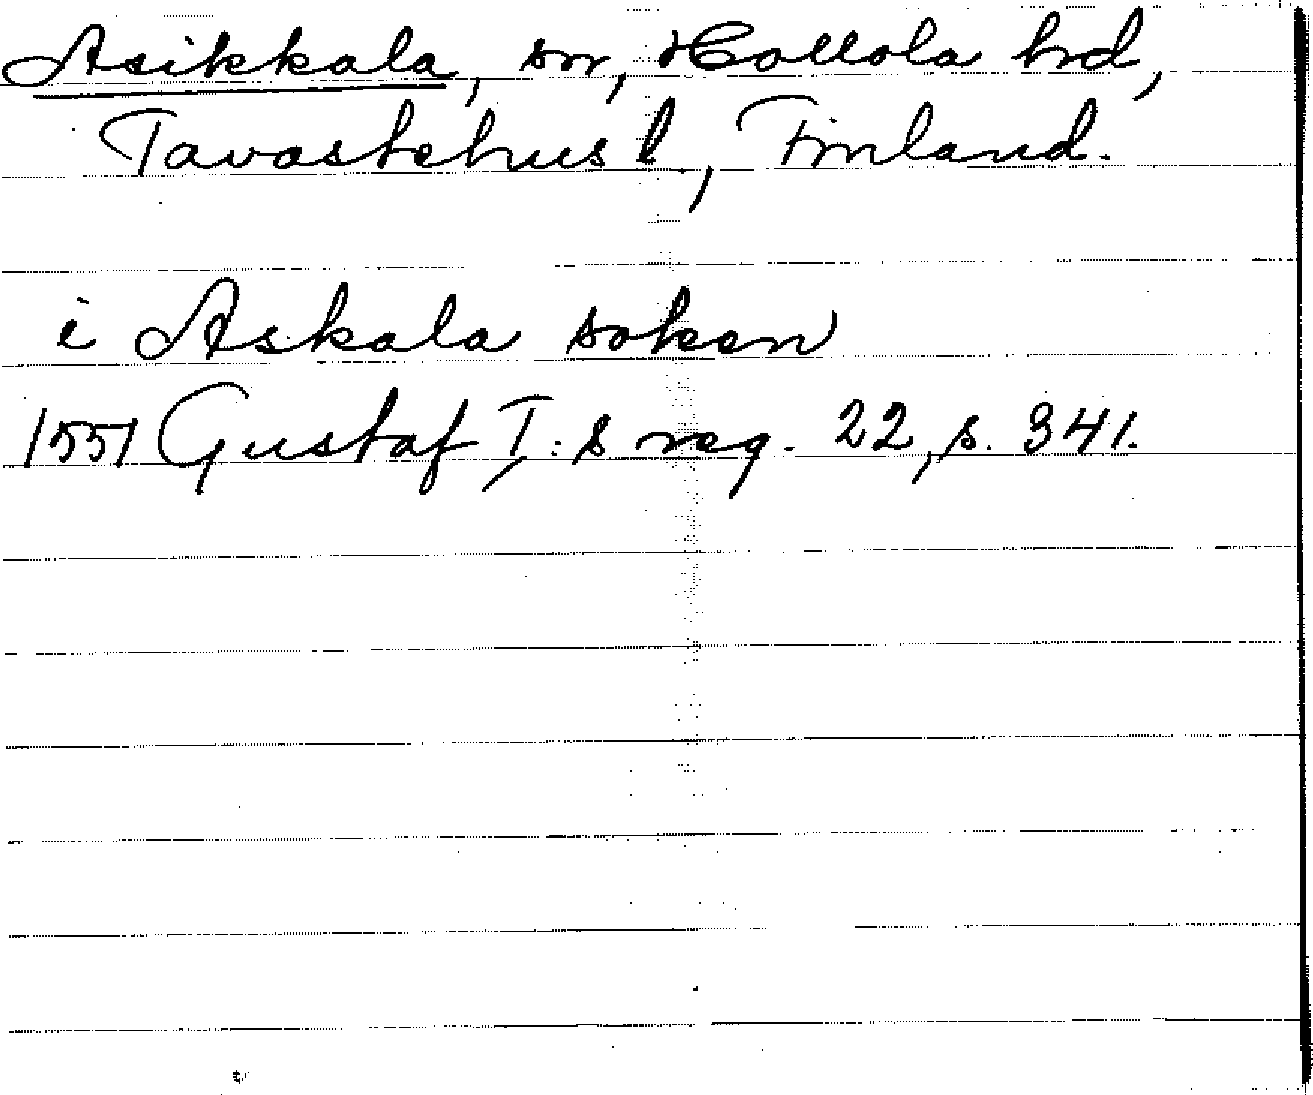 Asikkala, sn, Hollola hrd,
Tavastehus l, Finland.
i Askala soken
1551 Gustaf I:s reg. 22, s. 341.